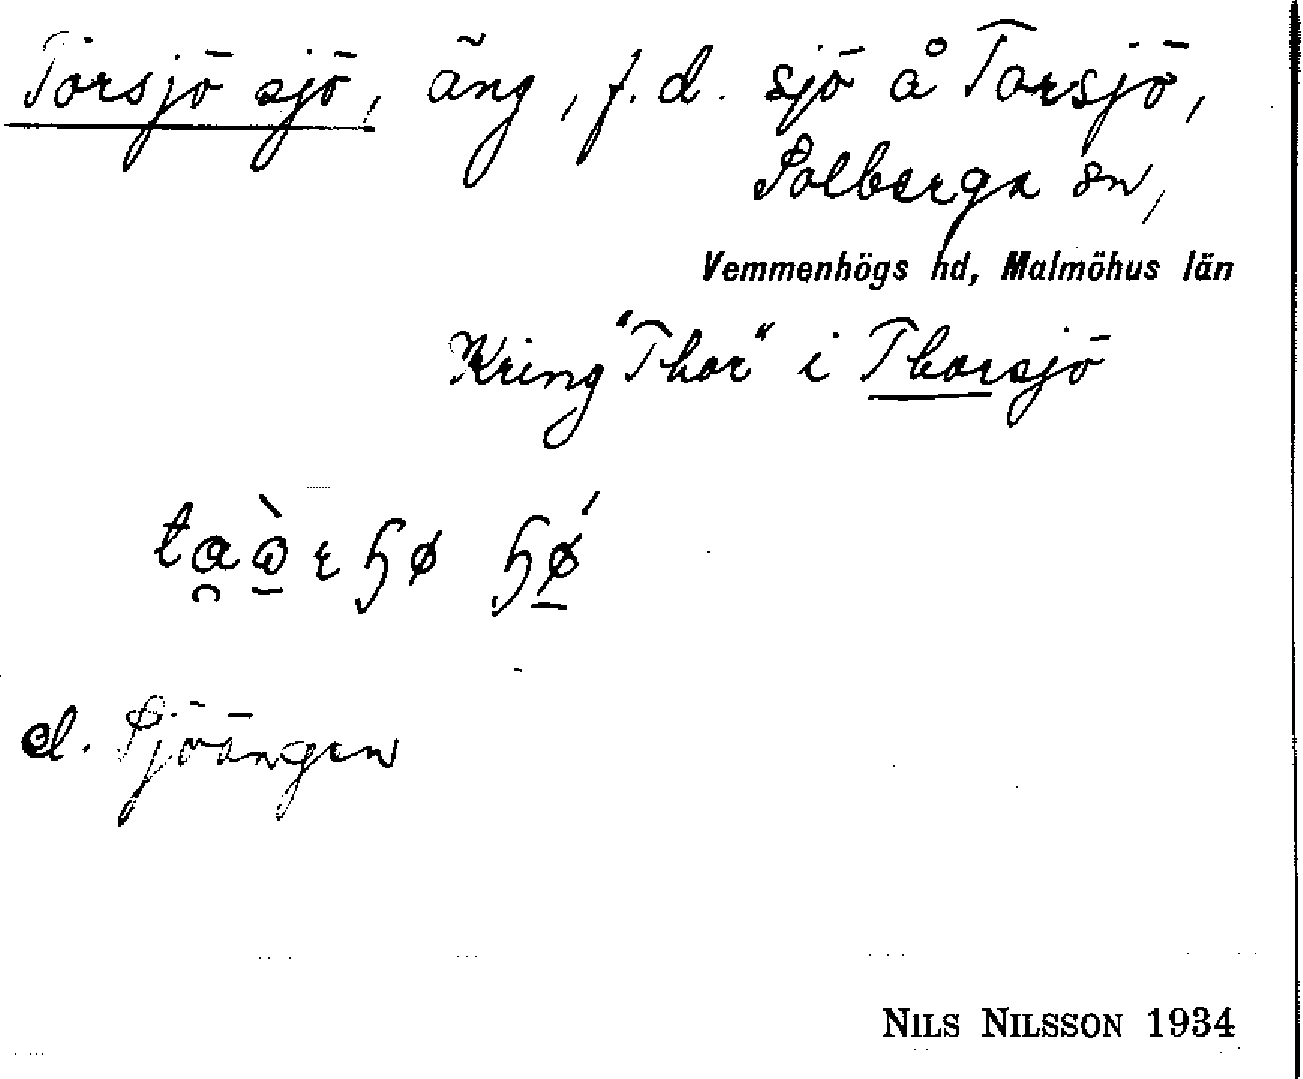 Torsjö sjö, äng, f.d. sjö å Torsjö,
Solberga sn,
Vemmenhögs hd, Malmöhus län
Kring "Thor" i Thorsjö
el. Sjöängen
NILS NILSSON 1934